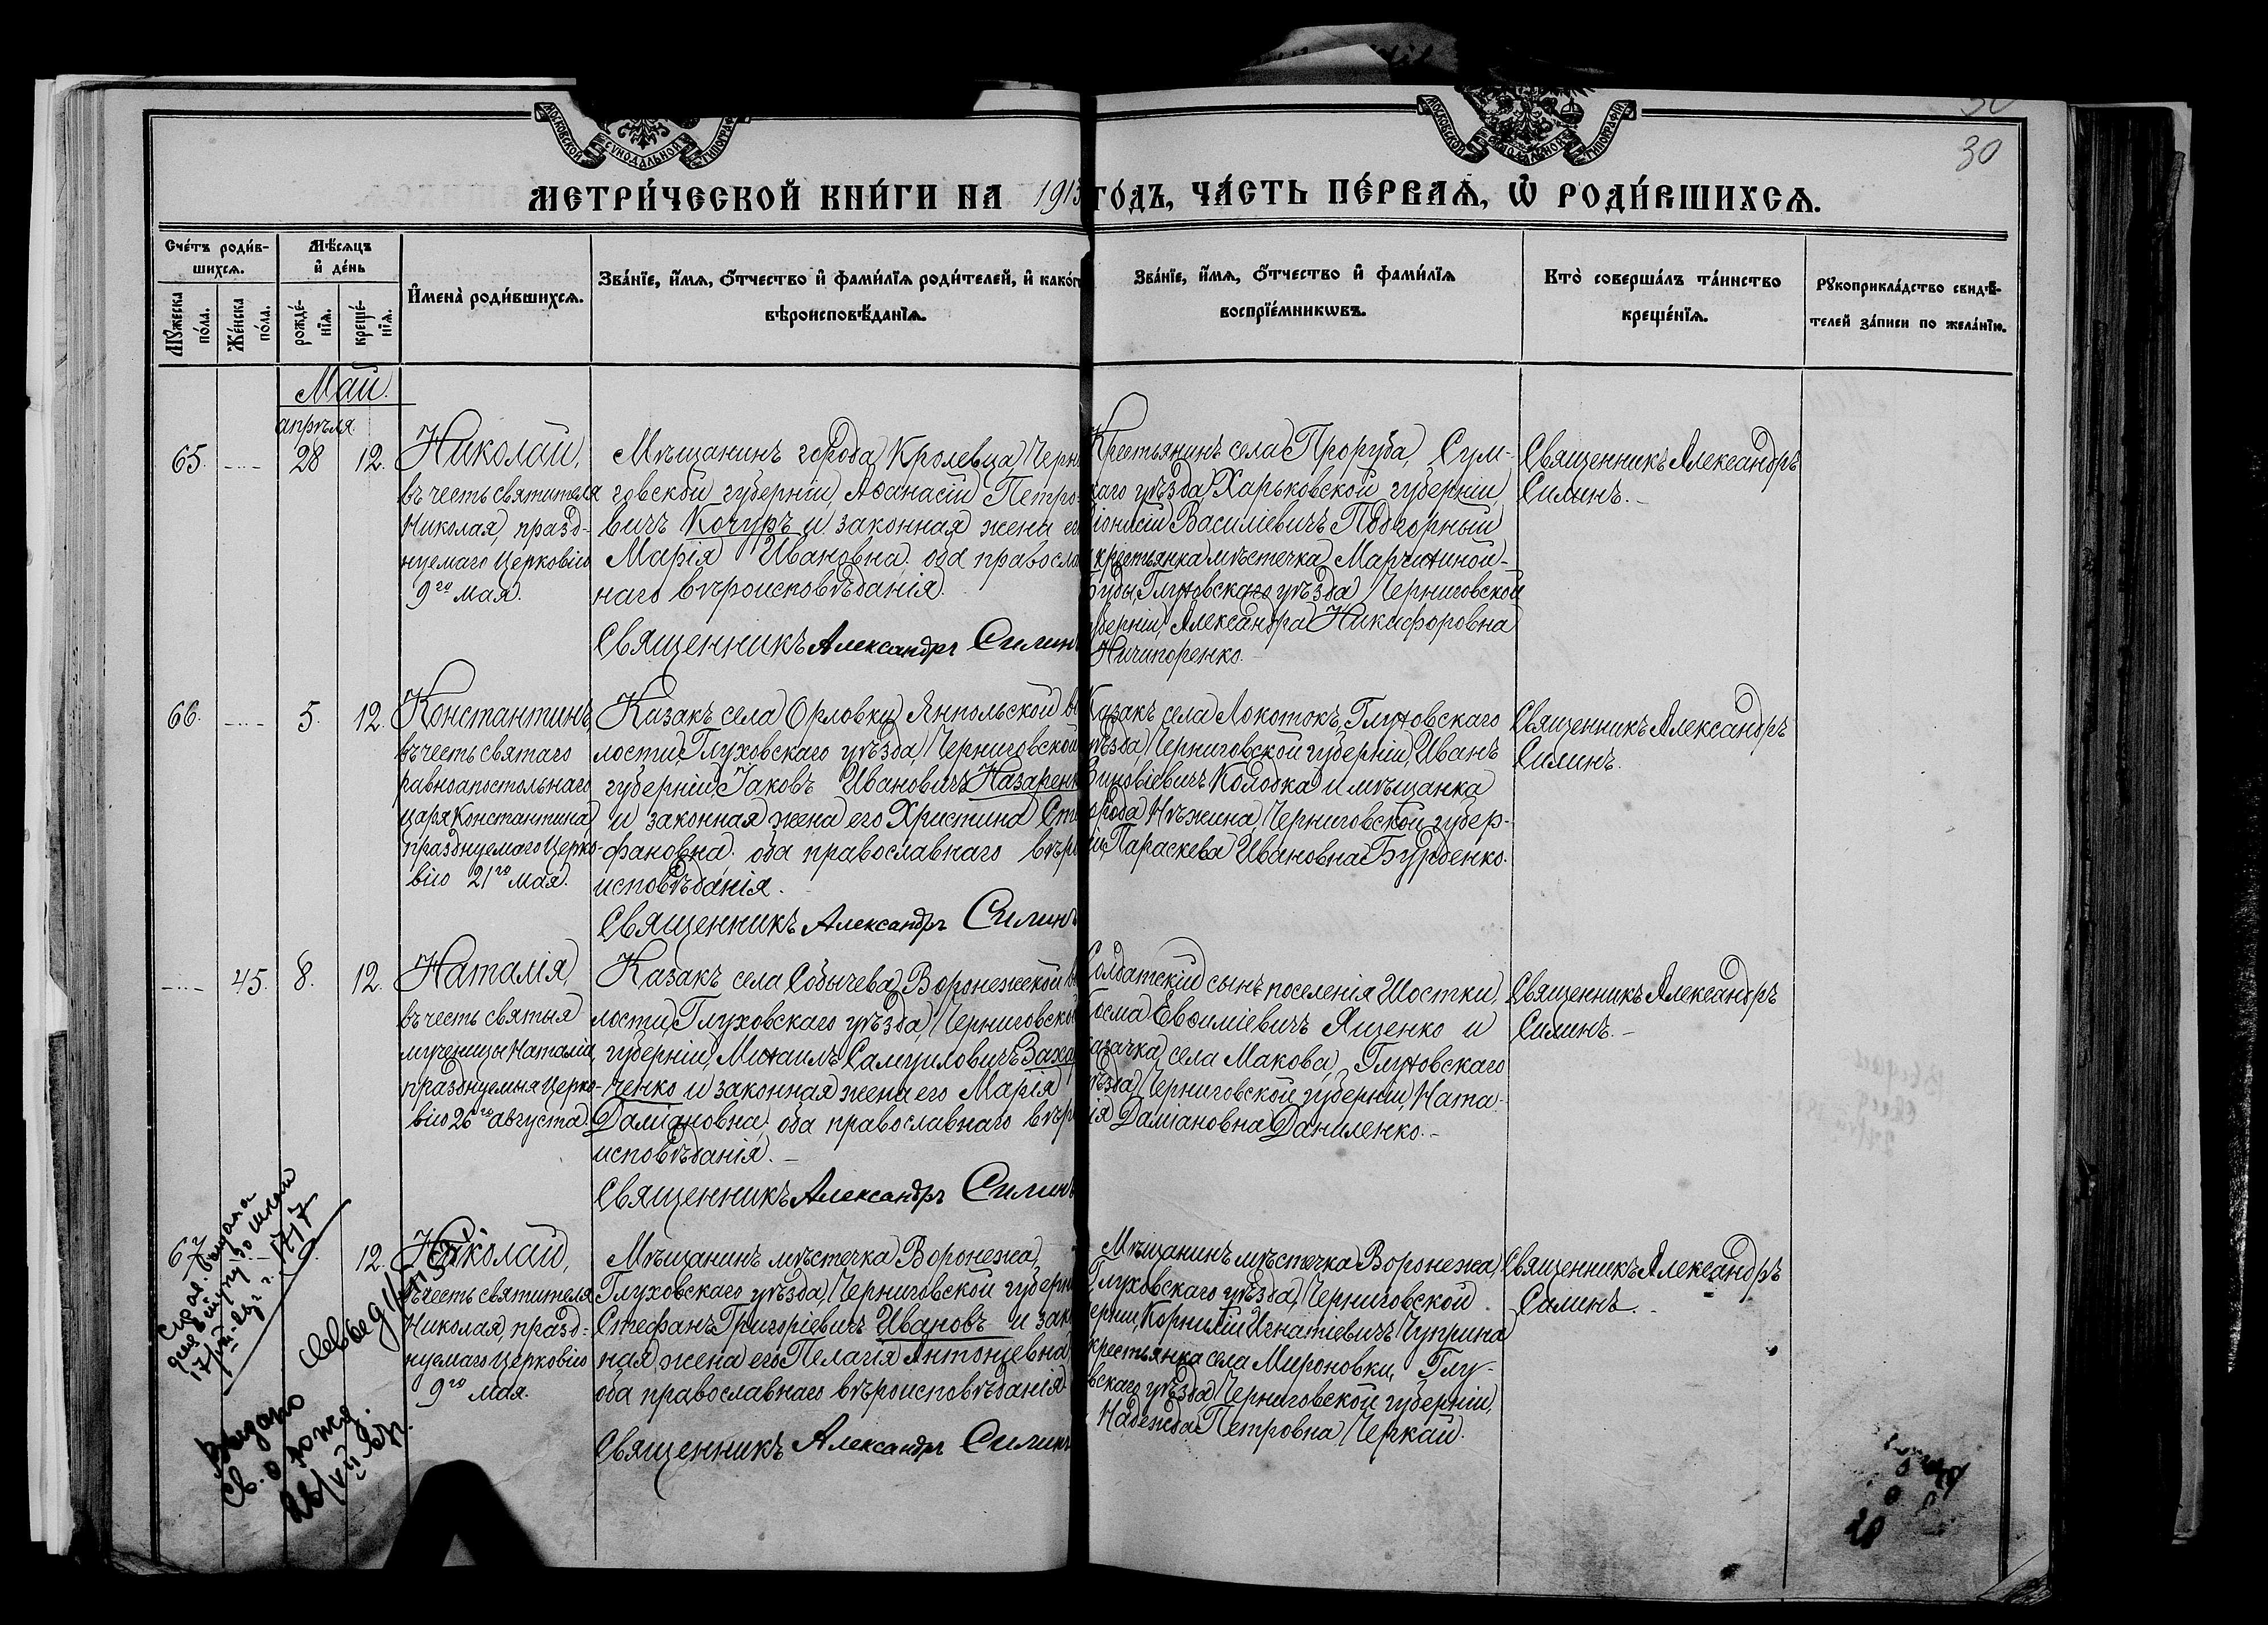 30
МОСКОВСКОЙ СѴНОДАЛЬНОЙ ТИПОГРАФІИ
МОСКОВСКОЙ СѴНОДАЛЬНОЙ ТИПОГРАФІИ
МЕТРИ́ЧЕСКОЙ КНИ́ГИ НА 1913 ГО́ДЪ, ЧА́СТЬ ПЕ́РВАѦ, Ѡ҆ РОДИ́ВШИХСѦ.
Сче́тъ роди́в-
шихсѧ.
Мꙋ́жеска
по́ла.
Же́нска
по́ла.
Мѣ́сѧцъ
и҆ де́нь
рожде́-
нїѧ.
креще́-
нїѧ.
И҆мена̀ роди́вшихсѧ.
Зва́нїе, и҆́мѧ, ѻ҆́тчество и҆ фами́лїѧ роди́телей, и҆ како́г
вѣроисповѣ́данїѧ.
Зва́нїе, и҆́мѧ, ѻ҆́тчество и҆ фами́лїѧ
воспрїе́мникѡвъ.
Кто̀ соверша́лъ та́инство
креще́нїѧ.
Рꙋкоприкла́дство свидѣ́-
телей за́писи по жела́нїю.
Май.
апрѣля.
65. 28 12.
Николай,
въ честь святителя
Николая, празд-
нуемаго Церковію
9го мая.
Мѣщанинъ города Кролевца Черни
говской губерніи, Аѳанасій Петро-
вичъ Кочуръ и законная жена его
Марія Ивановна. оба правосла
наго вѣроисповѣданія.
Священникъ Александръ Силинъ
Крестьянинъ села Проруба, Сум-
каго уѣзда Харьковской губерніи
іонисій Василіевичъ Подгорный
и крестьянка мѣстечка Марчихиной-
Буды, Глуховскаго уѣзда Черниговской
губерніи, Александра Никифоровна
Ничипоренко.
Священникъ Александръ
Силинъ.
66. 5. 12.
Константинъ,
въ честь святаго
равноапостольнаго
царя Константина
празднуемаго Церко-
вію 21го мая.
Казакъ села Орловки Янпольской во
лости, Глуховскаго уѣзда, Черниговской
губерніи, Іаковъ Ивановичъ Назаренк
и законная жена его Христина Сте
фановна. оба православнаго вѣро
исповѣданія.
Священникъ Александръ Силинъ
Казакъ села Локотокъ, Глуховскаго
уѣзда Черниговской губерніи, Иванъ
Зиновіевичъ Колодка и мѣщанка
города Нѣжина, Черниговской губер-
іи, Параскева Ивановна Бурденко.
Священникъ Александръ
Силинъ.
45. 8. 12.
Наталія,
въ честь святыя
мученицы Наталіи,
празднуемыя Церко-
вію 26го августа.
Казакъ села Собычева, Воронежской во
лости, Глуховскаго уѣзда, Черниговской
губерніи, Михаилъ Самуиловичъ Захар
ченко и законная жена его Марія
Даміановна. оба православнаго вѣро
исповѣданія.
Священникъ Александръ Силинъ
Солдатскій сынъ поселенія Шостки,
Косма Евѳиміевичъ Ященко и
казачка села Макова, Глуховскаго
уѣзда Черниговской губерніи, Ната-
лія Даміановна Даниленко.
Священникъ Александръ
Силинъ.
67. 12.
Николай,
въ честь святителя
Николая, празд-
нуемаго Церковію
9го мая.
Мѣщанинъ мѣстечка Воронежа,
Глуховскаго уѣзда, Черниговской губерн
Стефанъ Григоріевичъ Ивановъ и зако
ная жена его Пелагія Антоніевна
оба православнаго вѣроисповѣданія.
Священникъ Александръ Силинъ
Мѣщанинъ мѣстечка Воронежа,
Глуховскаго уѣзда, Черниговской
ерніи, Корнилій Игнатіевичъ Чуприна
крестьянка села Мироновки, Глу-
вскаго уѣзда Черниговской губерніи,
Надежда Петровна Черкай.
Священникъ Александръ
Силинъ.
Выдано
св. о рожд.